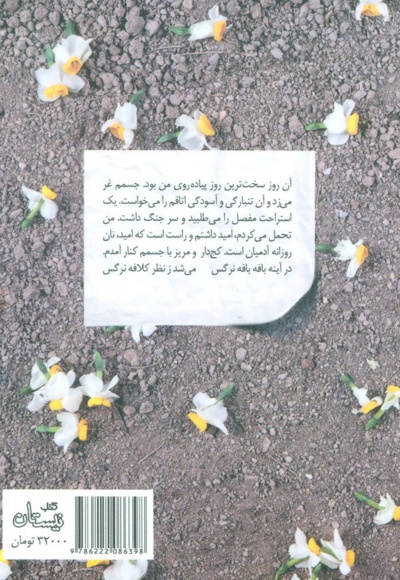 آن روز سخت‌ترین روز پیاده‌روی من بود. جسمم غر
می‌زد و آن تنبارگی و آسودگی اتاقم را می‌خواست. یک
استراحت مفصل را می‌طلبید و سر جنگ داشت. من
تحمل می‌کردم، امید داشتم و راست است که امید، نان
روزانه آدمیان است. کج‌دار و مریز با جسمم کنار آمدم.
در آینه بافه بافه نرگس می‌شد ز نظر کلافه نرگس
کتاب
نیستان
۳۲۰۰۰ تومان
9 786222 086398